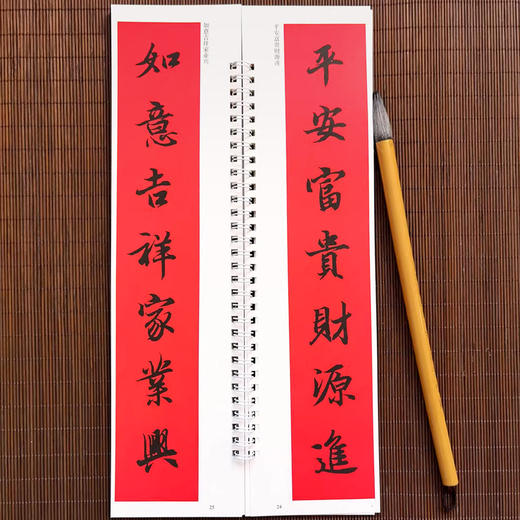 平安富貴財源進
平安富贵财源进
24
如意吉祥家業興
如意吉祥家业兴
25